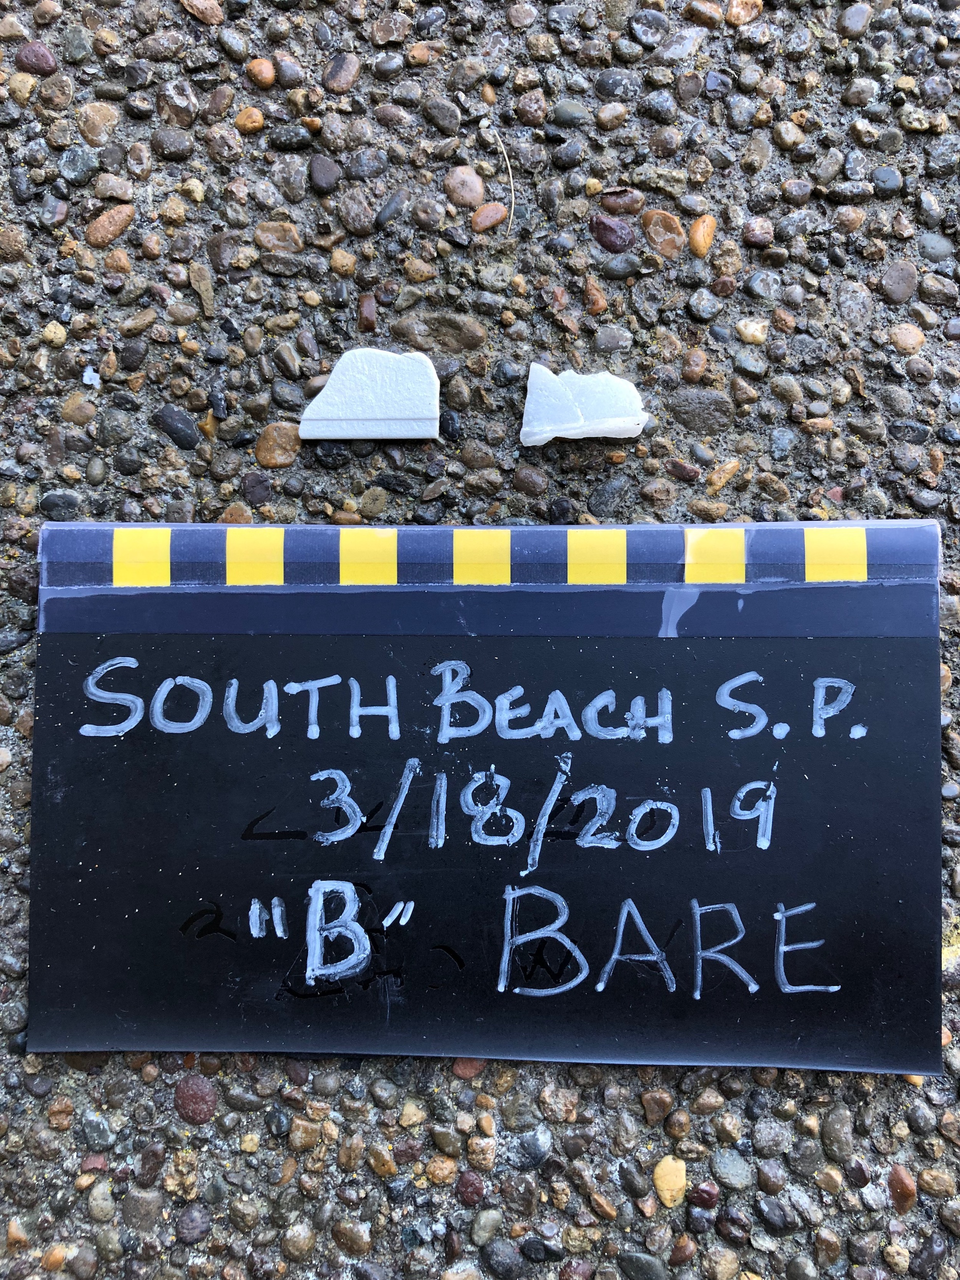 SOUTH BEACH S.P.
3/18/2019
"B" BARE